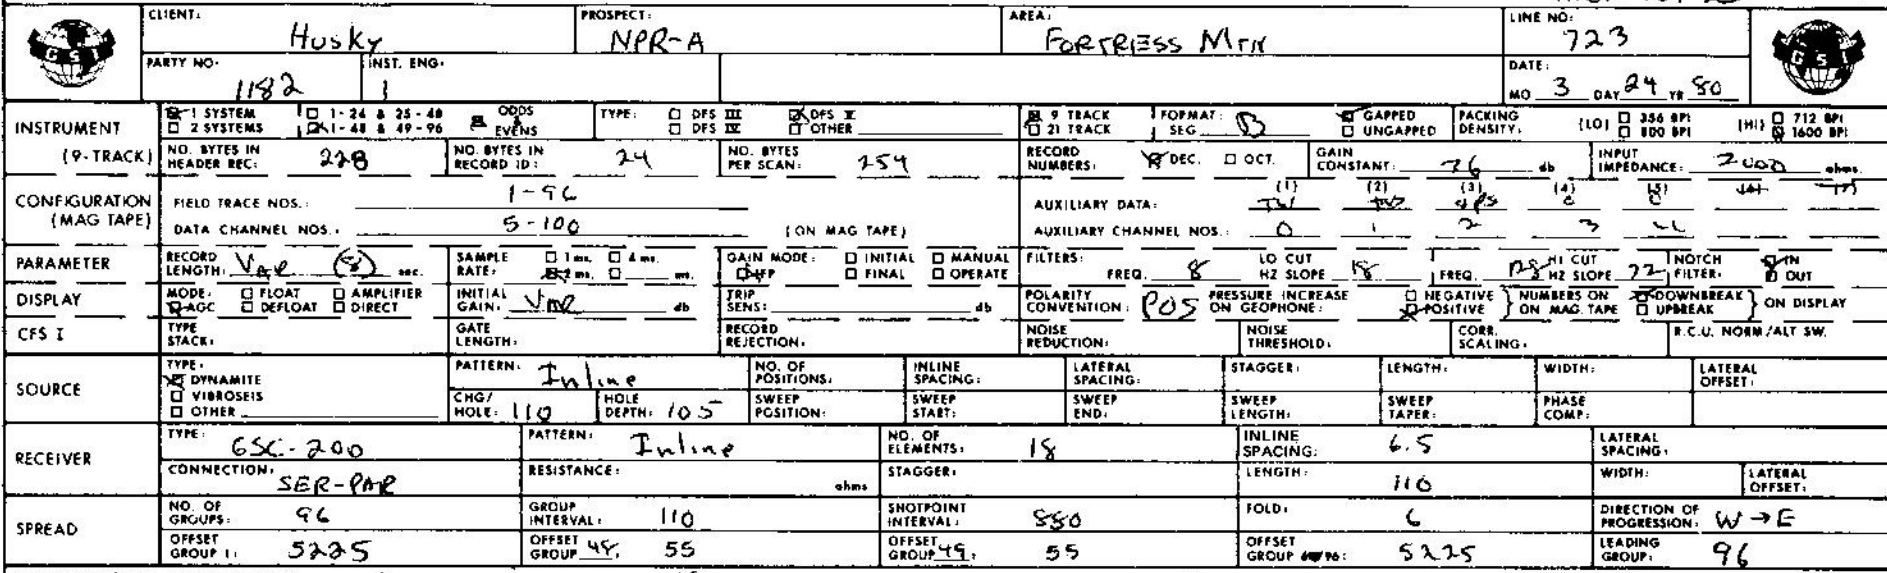 CLIENT: Husky PROSPECT: NPR-A AREA: FORTRESS MTN LINE NO: 723
GSI GSI
PARTY NO. 1182 INST. ENG. 1 DATE: MO 3 DAY 24 YR 80
INSTRUMENT (9-TRACK)
1 SYSTEM 1-24 & 25-48 ODDS TYPE: DFS III DFS V 9 TRACK FORMAT: GAPPED PACKING (LO) 356 BPI (HI) 712 BPI
2 SYSTEMS 1-48 & 49-96 & EVENS DFS IV OTHER 21 TRACK SEG B UNGAPPED DENSITY: 800 BPI 1600 BPI
NO. BYTES IN HEADER REC: 228 NO. BYTES IN RECORD ID: 24 NO. BYTES PER SCAN: 254 RECORD NUMBERS: DEC. OCT. GAIN CONSTANT: 36 db INPUT IMPEDANCE: 2000 ohms.
CONFIGURATION (MAG TAPE)
FIELD TRACE NOS.: 1-96 AUXILIARY DATA: (1) (2) (3) (4) (5) (6) (7)
DATA CHANNEL NOS.: 5-100 (ON MAG TAPE) AUXILIARY CHANNEL NOS.: 0 1 2 3
PARAMETER
RECORD LENGTH: VAR (8) sec. SAMPLE RATE: 1 ms. 4 ms. 2 ms. ms. GAIN MODE: INITIAL MANUAL IFP FINAL OPERATE FILTERS: FREQ. 8 LO CUT HZ SLOPE 18 FREQ. 128 HI CUT HZ SLOPE 72 NOTCH FILTER: IN OUT
DISPLAY
MODE: FLOAT AMPLIFIER AGC DEFLOAT DIRECT INITIAL GAIN: VAR db TRIP SENS: db POLARITY CONVENTION: POS PRESSURE INCREASE ON GEOPHONE: NEGATIVE POSITIVE NUMBERS ON ON MAG. TAPE DOWNBREAK UPBREAK ON DISPLAY
CFS I
TYPE STACK: GATE LENGTH: RECORD REJECTION: NOISE REDUCTION: NOISE THRESHOLD: CORR. SCALING: R.C.U. NORM/ALT SW.
SOURCE
TYPE: DYNAMITE VIBROSEIS OTHER
PATTERN: Inline NO. OF POSITIONS: INLINE SPACING: LATERAL SPACING: STAGGER: LENGTH: WIDTH: LATERAL OFFSET:
CHG/HOLE: 110 HOLE DEPTH: 105 SWEEP POSITION: SWEEP START: SWEEP END: SWEEP LENGTH: SWEEP TAPER: PHASE COMP:
RECEIVER
TYPE: GSC-200 PATTERN: Inline NO. OF ELEMENTS: 18 INLINE SPACING: 6.5 LATERAL SPACING:
CONNECTION: SER-PAR RESISTANCE: ohms STAGGER: LENGTH: 110 WIDTH: LATERAL OFFSET:
SPREAD
NO. OF GROUPS: 96 GROUP INTERVAL: 110 SHOTPOINT INTERVAL: 880 FOLD: 6 DIRECTION OF PROGRESSION: W → E
OFFSET GROUP 1: 5225 OFFSET GROUP 48: 55 OFFSET GROUP 49: 55 OFFSET GROUP 96: 5225 LEADING GROUP: 96